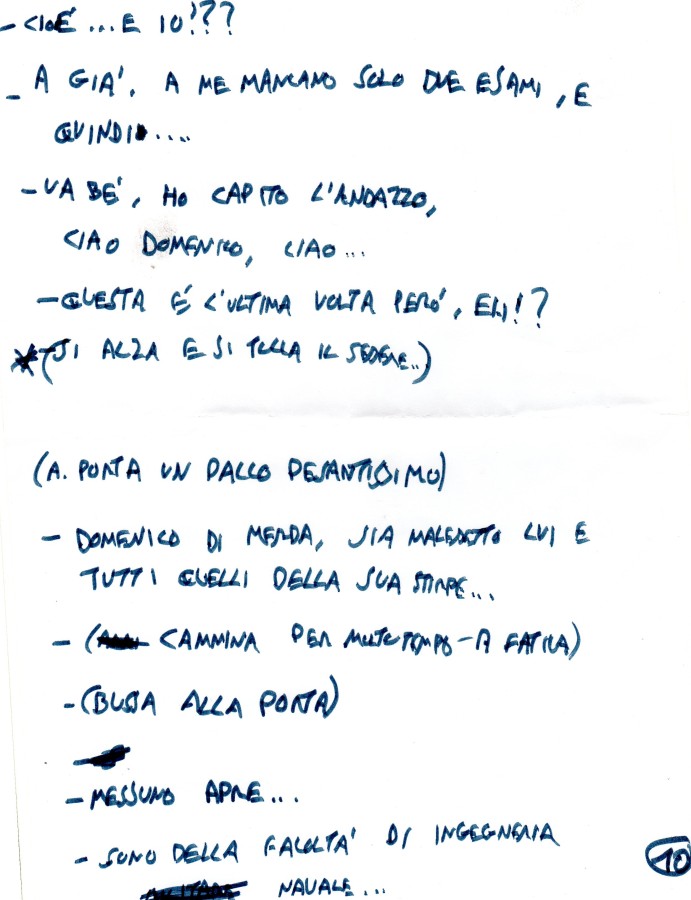 - CIOÈ ... E IO!??
- A GIA'. A ME MANCANO SOLO DUE ESAMI, E
QUINDI....
- VA BE', HO CAPITO L'ANDAZZO,
CIAO DOMENICO, CIAO...
- QUESTA È L'ULTIMA VOLTA PERO', EH!?
(SI ALZA E SI TOCCA IL SEDERE..)
(A. PORTA UN PACCO PESANTISSIMO)
- DOMENICO DI MERDA, SIA MALEDETTO LUI E
TUTTI QUELLI DELLA SUA STIRPE...
- ( CAMMINA PER MOLTO TEMPO - A FATICA)
- (BUSSA ALLA PORTA)
- NESSUNO APRE...
- SONO DELLA FACOLTA' DI INGEGNERIA
NAVALE...
10